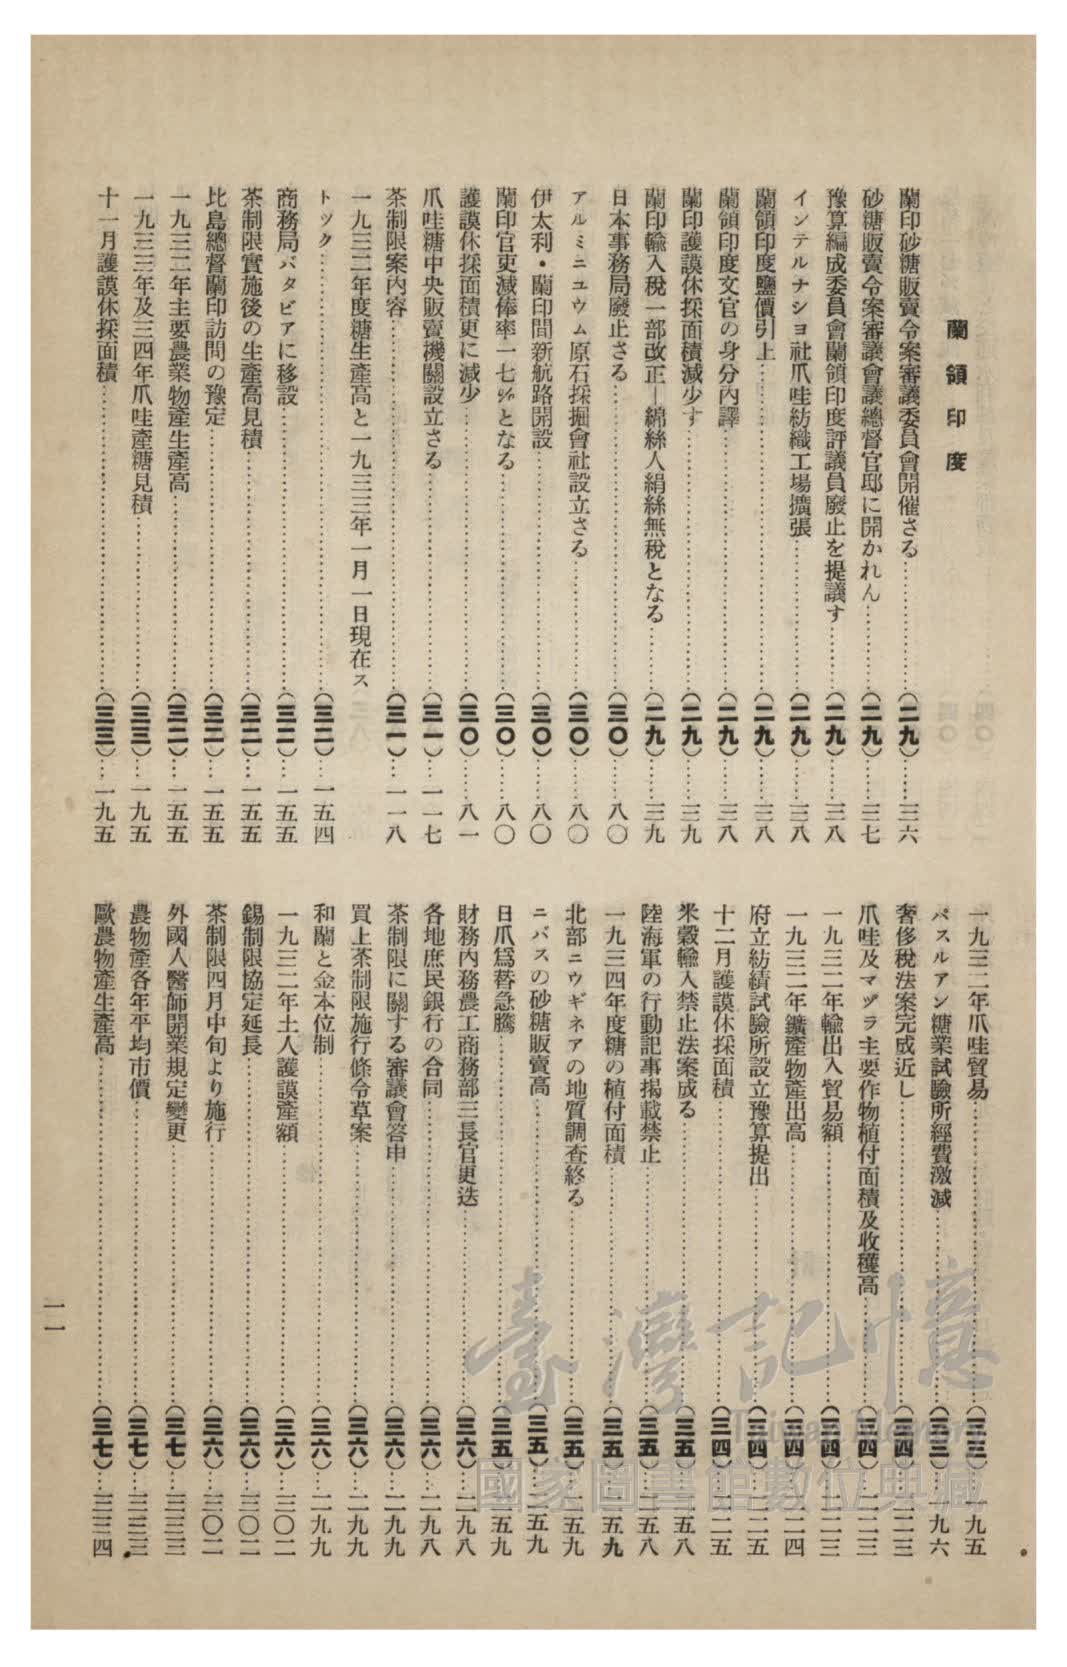 蘭領印度
蘭印砂糖販賣令案審議委員會開催さる……(二九)……三六
砂糖販賣令案審議會議總督官邸に開かれん……(二九)……三七
豫算編成委員會蘭領印度評議員廢止を提議す……(二九)……三八
インテルナシヨ社爪哇紡織工場擴張……(二九)……三八
蘭領印度鹽價引上……(二九)……三八
蘭領印度文官の身分內譯……(二九)……三八
蘭印護謨休採面積減少す……(二九)……三九
蘭印輸入稅一部改正―綿絲人絹絲無稅となる……(二九)……三九
日本事務局廢止さる……(三〇)……八〇
アルミニユウム原石採掘會社設立さる……(三〇)……八〇
伊太利・蘭印間新航路開設……(三〇)……八〇
蘭印官吏減俸率一七%となる……(三〇)……八〇
護謨休採面積更に減少……(三〇)……八一
爪哇糖中央販賣機關設立さる……(三一)…一一七
茶制限案內容……(三一)…一一八
一九三二年度糖生產高と一九三三年一月一日現在ス
トツク……(三二)…一五四
商務局バタビアに移設……(三二)…一五五
茶制限實施後の生產高見積……(三二)…一五五
比島總督蘭印訪問の豫定……(三二)…一五五
一九三二年主要農業物產生產高……(三二)…一五五
一九三三年及三四年爪哇產糖見積……(三三)…一九五
十一月護謨休採面積……(三三)…一九五
一九三二年爪哇貿易……(三三)…一九五
パスルアン糖業試驗所經費激減……(三三)…一九六
奢侈稅法案完成近し……(三四)…二二三
爪哇及マヅラ主要作物植付面積及收穫高……(三四)…二二三
一九三二年輸出入貿易額……(三四)…二二三
一九三二年鑛產物產出高……(三四)…二二四
府立紡績試驗所設立豫算提出……(三四)…二二五
十二月護謨休採面積……(三四)…二二五
米穀輸入禁止法案成る……(三五)…二五八
陸海軍の行動記事揭載禁止……(三五)…二五八
一九三四年度糖の植付面積……(三五)…二五九
北部ニウギネアの地質調查終る……(三五)…二五九
ニバスの砂糖販賣高……(三五)…二五九
日爪爲替急騰……(三五)…二五九
財務內務農工商務部三長官更迭……(三六)…二九八
各地庶民銀行の合同……(三六)…二九八
茶制限に關する審議會答申……(三六)…二九九
買上茶制限施行條令草案……(三六)…二九九
和蘭と金本位制……(三六)…二九九
一九三二年土人護謨產額……(三六)…三〇二
錫制限協定延長……(三六)…三〇二
茶制限四月中旬より施行……(三六)…三〇二
外國人醫師開業規定變更……(三七)…三三三
農物產各年平均市價……(三七)…三三三
歐農物產生產高……(三七)…三三四
一一
臺灣記憶
Taiwan Memory
國家圖書館數位典藏